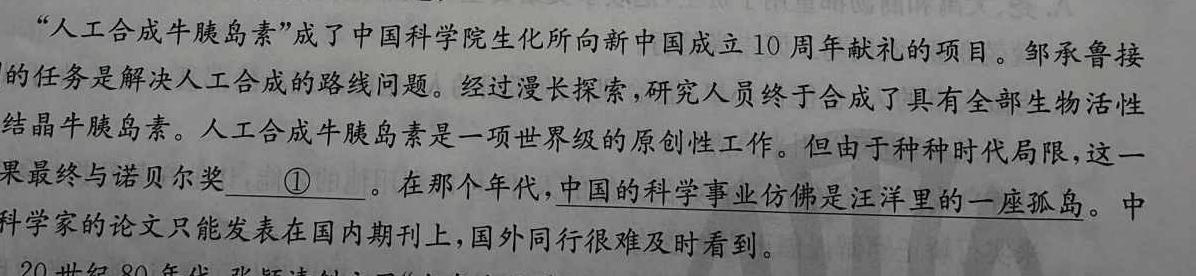 “人工合成牛胰岛素”成了中国科学院生化所向新中国成立 10 周年献礼的项目。邹承鲁接
的任务是解决人工合成的路线问题。经过漫长探索,研究人员终于合成了具有全部生物活性
结晶牛胰岛素。人工合成牛胰岛素是一项世界级的原创性工作。但由于种种时代局限,这一
果最终与诺贝尔奖 ① 。在那个年代,中国的科学事业仿佛是汪洋里的一座孤岛。中
科学家的论文只能发表在国内期刊上,国外同行很难及时看到。
20 世纪 80 年代